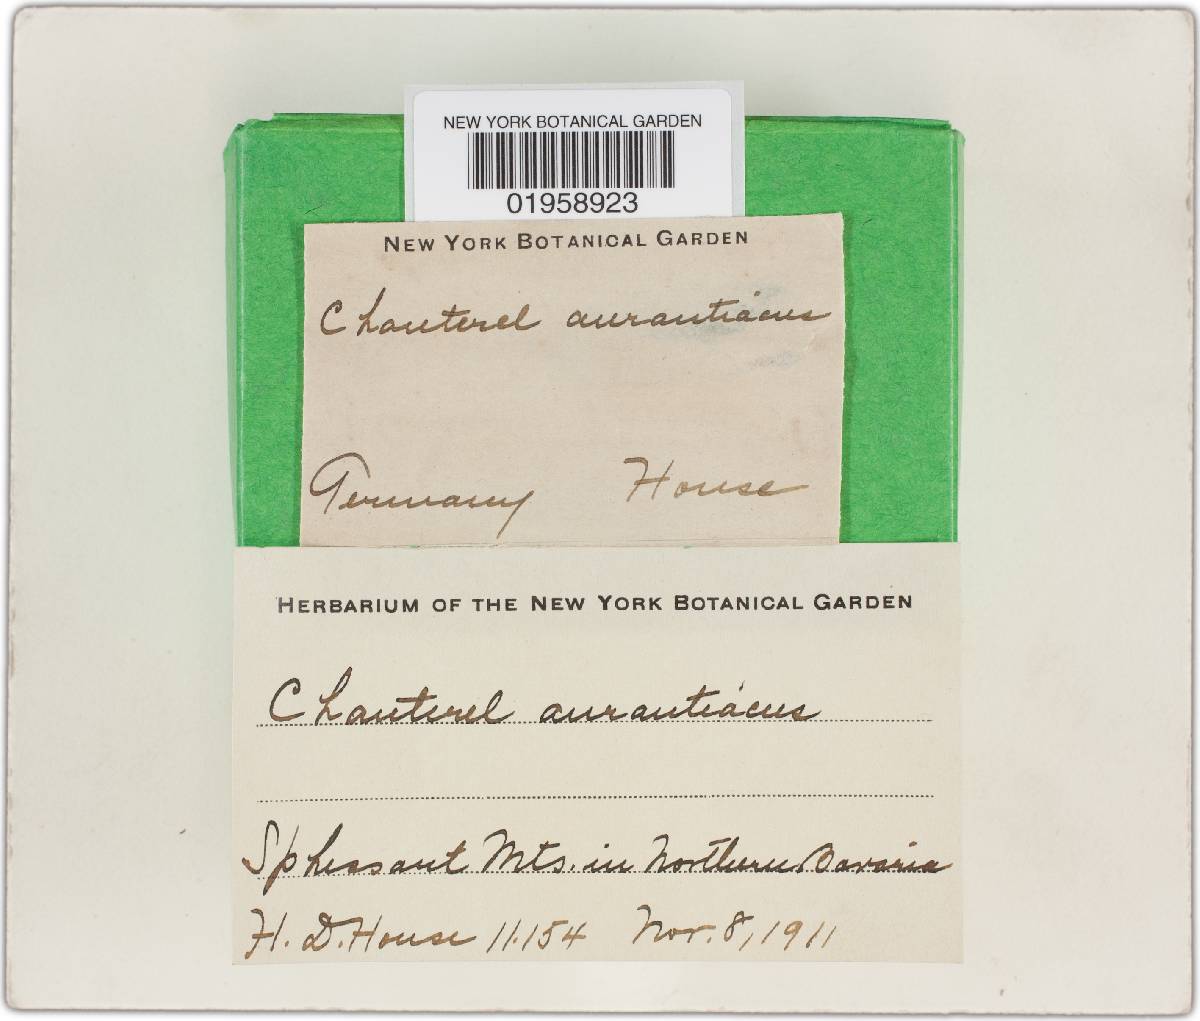 NEW YORK BOTANICAL GARDEN
01958923
NEW YORK BOTANICAL GARDEN
Chanterel aurantiacus
Germany House
HERBARIUM OF THE NEW YORK BOTANICAL GARDEN
Chanterel aurantiacus
Sphessart Mts. in Northern Bavaria
H. D. House 11.154 Nov. 8, 1911